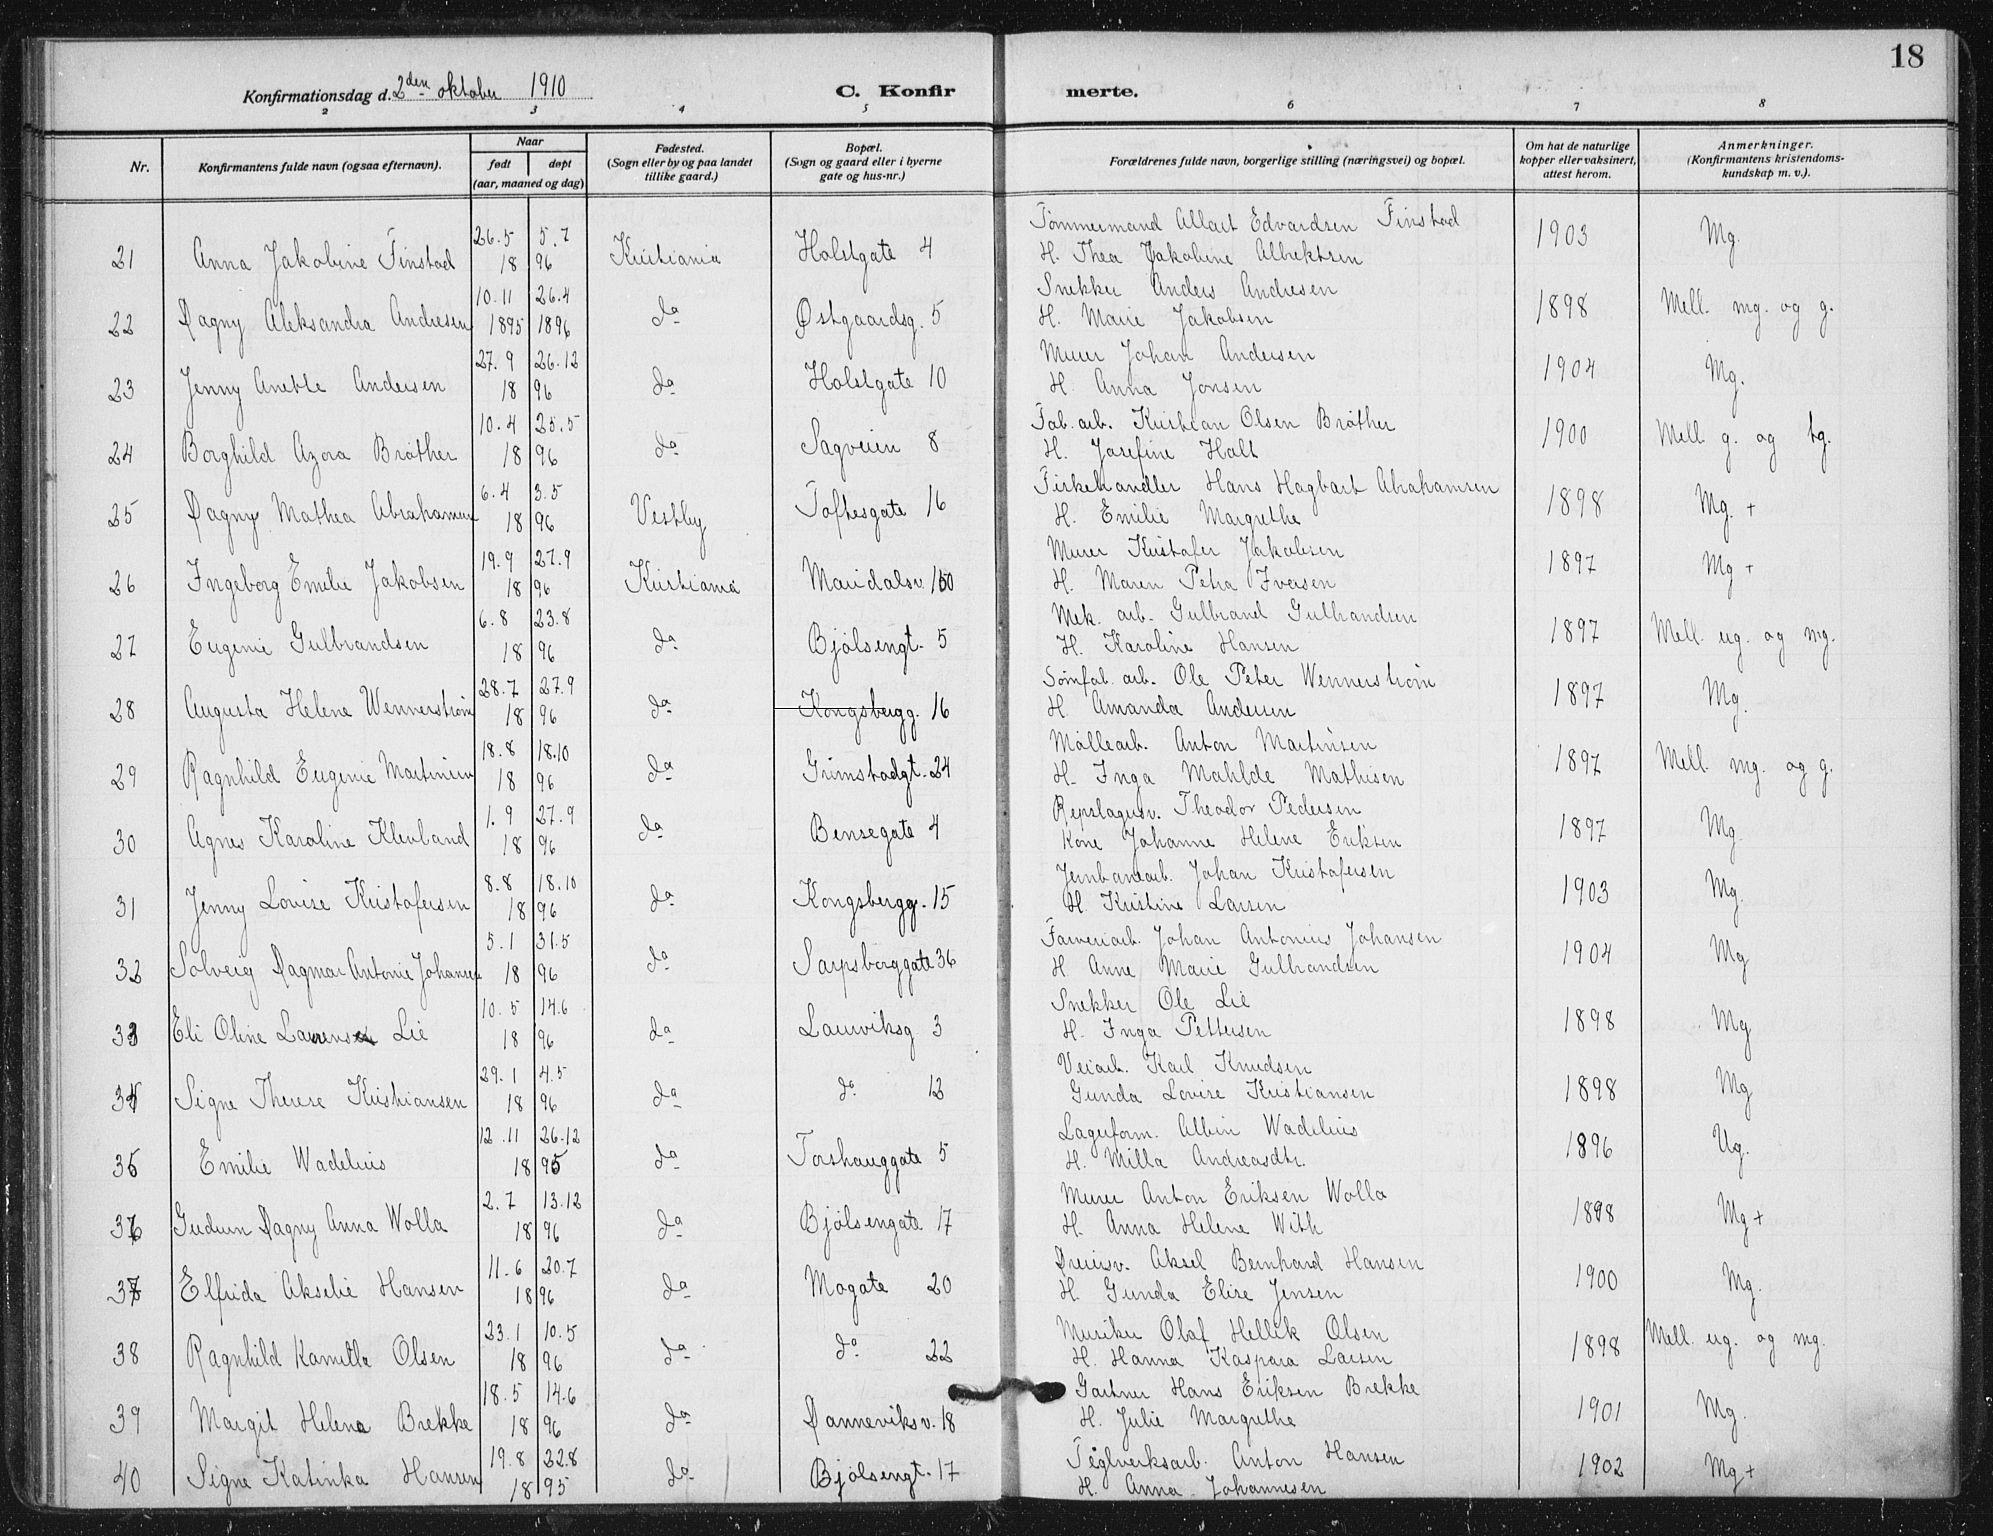 18
Konfirmationsdag d. 2den oktober 1910
C. Konfirmerte.
2 3 4 5 6 7 8
Nr.
Konfirmantens fulde navn (ogsaa efternavn).
Naar
født døpt
(aar, maaned og dag)
Fødested.
(Sogn eller by og paa landet
tillike gaard.)
Bopæl.
(Sogn og gaard eller i byerne
gate og hus-nr.)
Forældrenes fulde navn, borgerlige stilling (næringsvei) og bopæl.
Om hat de naturlige
kopper eller vaksinert,
attest herom.
Anmerkninger.
(Konfirmantens kristendoms-
kundskap m. v.).
26.5 5.7 Tømmermand Edvardsen Finstad
21 Anna Jakobine Finstad 18 96 Kristiania Holstgate 4 H. Thea Jakobine Albrektsen 1903 Mg.
10.11 26.4 Snekker Anders Andresen
22 Dagny Aleksandra Andresen 1895 1896 do Østgaardsg. 5 H. Marie Jakobsen 1898 Mell. mg. og g.
27.9 26.12 Murer Johan Andersen
23 Jenny Anette Andersen 18 96 do Holstgate 10 H. Anna Jonsen 1904 Mg.
10.4 25.5 Fab. arb. Kristian Olsen Bråther
24 Borghild Azora Bråther 18 96 do Sagveien 8 H. Josefine Holt 1900 Mell. g. og tg.
6.4 3.5 Fiskehandler Hans Hagbart Abrahamsen
25 Dagny Mathea Abrahamsen 18 96 Vestby Toftesgate 16 H. Emilie Margrethe 1898 Mg. +
19.9 27.9 Murer Kristofer Jakobsen
26 Ingeborg Emilie Jakobsen 18 96 Kristiania Maridalsv. H. Maren Petra Iversen 1897 Mg +
6.8 23.8 Mek. arb. Gulbrand Gulbrandsen
27 Eugenie Gulbrandsen 18 96 do Bjølsengt. 5 H. Karoline Hansen 1897 Mell. ug. og mg.
28.7 27.9 Sømfab. arb. Ole Peter Wennerstrøm
28 Augusta Helene Wennerstrøm 18 96 do Kongsbergg. 16 H. Amanda Andersen 1897 Mg.
18.8 18.10 Møllearb. Anton Martinsen
29 Ragnhild Eugenie Martinsen 18 96 do Grimstadgt. 24 H. Inga Mathisen 1897 Mell. mg. og g.
1.9 27.9 Repslagersv. Theodor Pedersen
30 Agnes Karoline Klevband 18 96 do Bensegate 4 Kone Johanne Helene Eriksen 1897 Mg.
8.8 18.10 Jernbanearb. Johan Kristofersen
31 Jenny Lovise Kristofersen 18 96 do Kongsbergg. 15 H. Kristine Larsen 1903 Mg.
5.1 31.5 Farveriarb. Johan Antonius Johansen
32 Solveig Dagmar Antonie Johansen 18 96 do Sarpsborggate 36 H. Anne Marie Gulbrandsen 1904 Mg
10.5 14.6 Snekker Ole Lie
33 Eli Oline Lie 18 96 do Laurviksg 3 H. Inga Pettersen 1898 Mg
29.1 4.5 Veiarb. Karl Knudsen
34 Signe Therese Kristiansen 18 96 do do 12 Gunda Lovise Kristiansen 1898 Mg
12.11 26.12 Lagerform. Albin Wadelius
35 Emilie Wadelius 18 95 do Torshauggate 5 H. Milla Andreasdtr. 1896 Ug.
2.7 13.12 Murer Anton Eriksen Wolla
36 Gudrun Dagny Anna Wolla 18 96 do Bjølsengate 17 H. Anna Helene With 1898 Mg +
11.6 20.7 Dreiersv. Aksel Bernhard Hansen
37 Elfrida Akselie Hansen 18 96 do Mogate 20 H. Gunda Elise Jensen 1900 Mg.
23.1 10.5 Musiker Olaf Hellik Olsen
38 Ragnhild Kamilla Olsen 18 96 do do 22 H. Hanna Kaspara Larsen 1898 Mell. ug. og mg.
18.5 14.6 Gartner Hans Eriksen Brekke
39 Margit Helene Brekke 18 96 do Danneviksv. 18 H. Julie Margrethe 1901 Mg.
19.8 22.8 Teglverksarb. Anton Hansen
40 Signe Katinka Hansen 18 95 do Bjølsengt. 17 H. Anna Johannesen 1902 Mg +